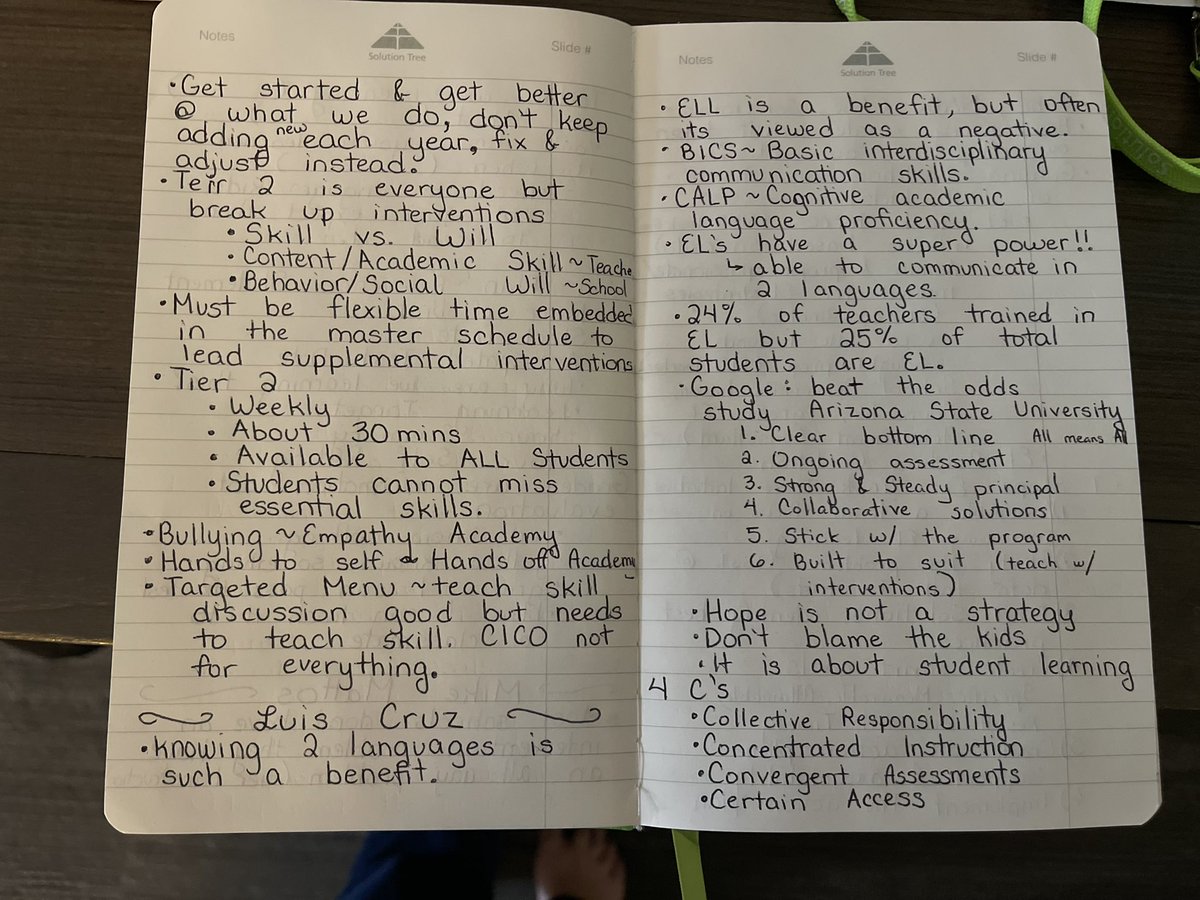 Notes
Solution Tree
Slide #
• Get started & get better
@ what we do, don't keep
adding new each year, fix &
adjust instead.
• Teir 2 is everyone but
break up interventions
• Skill vs. Will
• Content/Academic Skill ~ Teache
• Behavior/Social Will ~ School
• Must be flexible time embedded
in the master schedule to
lead supplemental interventions
• Tier 2
• Weekly
• About 30 mins
• Available to ALL Students
• Students cannot miss
essential skills.
• Bullying ~ Empathy Academy
• Hands to self & Hands off Academy
• Targeted Menu ~ teach skill
discussion good but needs
to teach skill. CICO not
for everything.
Luis Cruz
• Knowing 2 languages is
such a benefit.
Notes
Solution Tree
Slide #
• ELL is a benefit, but often
its viewed as a negative.
• BICS ~ Basic interdisciplinary
communication skills.
• CALP ~ Cognitive academic
language proficiency.
• EL's have a super power!!
↳ able to communicate in
2 languages.
• 24% of teachers trained in
EL but 25% of total
students are EL.
• Google: beat the odds
study Arizona State University
1. Clear bottom line All means All
2. Ongoing assessment
3. Strong & Steady principal
4. Collaborative solutions
5. Stick w/ the program
6. Built to suit (teach w/
interventions)
• Hope is not a strategy
• Don't blame the kids
• It is about student learning
4 C's
• Collective Responsibility
• Concentrated Instruction
• Convergent Assessments
• Certain Access